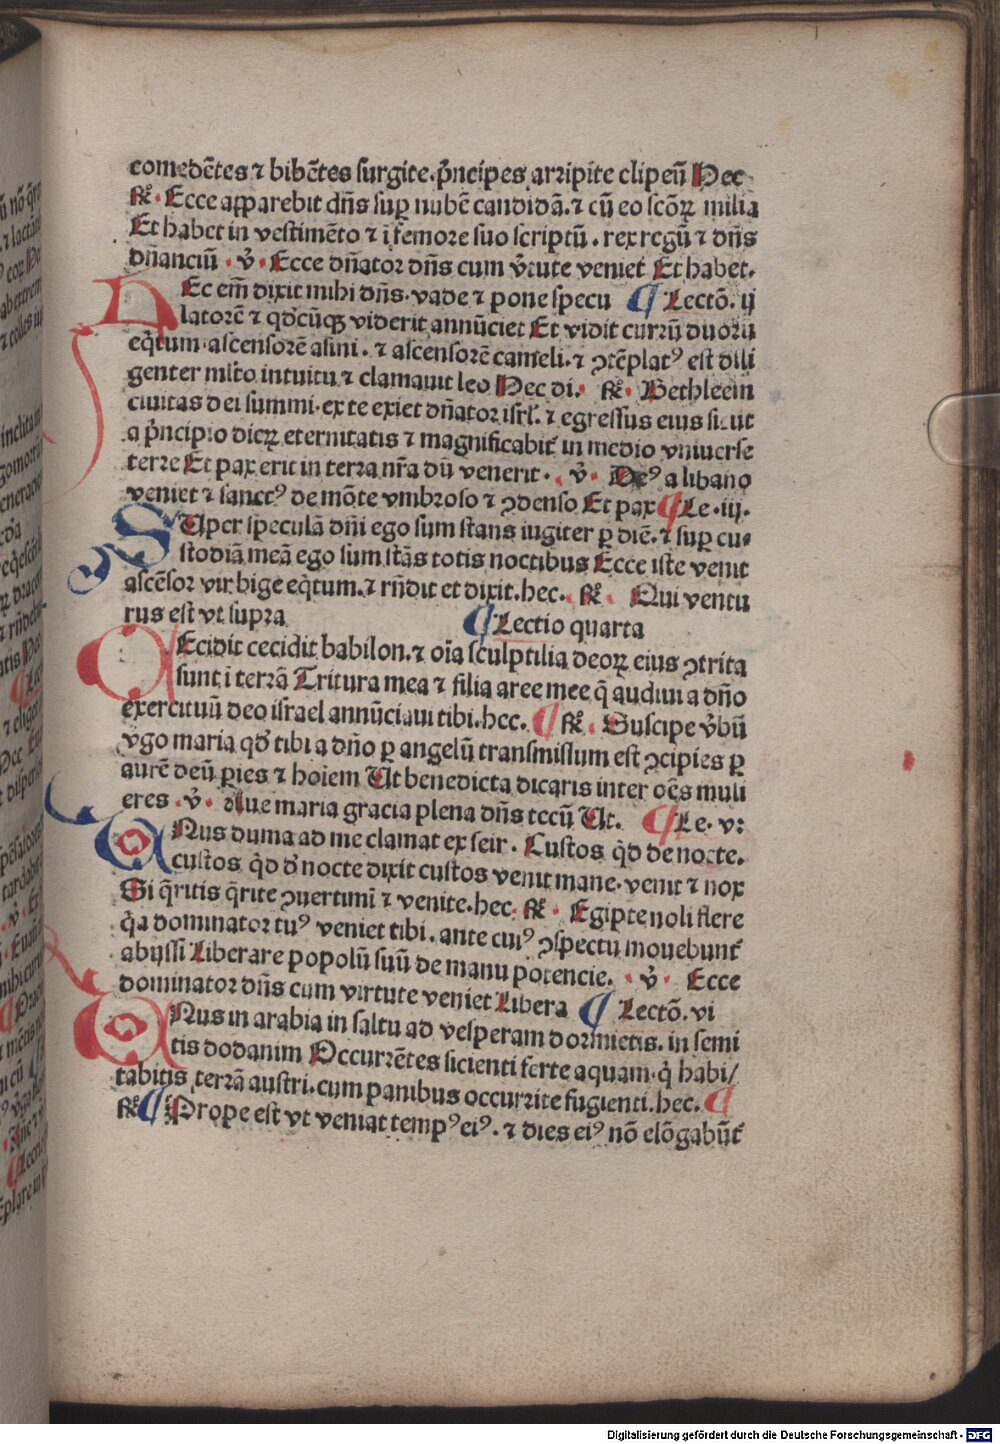 comedētes ⁊ bibētes surgite.p̄ncipes arripite clipeū Hec
℟. Ecce apparebit dn̄s suꝑ nubē candidā.⁊ cū eo scōꝝ milia
Et habet in vestimēto ⁊ ī femore suo scriptū.rex regū ⁊ dn̄s
dn̄anciū. v̄. Ecce dn̄ator dn̄s cum v̄tute veniet Et habet.
HEc em̄ dixit mihi dn̄s.vade ⁊ pone specu ¶ Lectō.ij
latorē ⁊ qd̄cūqꝫ viderit annūciet Et vidit currū duoꝝ
eq̄tum.ascensorē asini.⁊ ascensorē cameli.⁊ ꝯtēplatꝰ est dili
genter ml̄to intuitu ⁊ clamauit leo Hec di. ℟. Bethleem
ciuitas dei summi.ex te exiet dn̄ator isrl̄.⁊ egressus eius sicut
a p̄ncipio dieꝝ eternitatis ⁊ magnificabit̄ in medio vniuerse
terre Et pax erit in terra nr̄a dū venerit. v̄. Deꝰ a libano
veniet ⁊ sanctꝰ de mōte vmbroso ⁊ ꝯdenso Et pax ¶ Le.iij.
SUper speculā dn̄i ego sum stans iugiter ꝑ diē.⁊ suꝑ cu
stodiā meā ego sum stās totis noctibus Ecce iste venit
ascēsor vir bige eq̄tum.⁊ rn̄dit et dixit.hec. ℟. Qui ventu
rus est vt supra ¶ Lectio quarta
CEcidit cecidit babilon.⁊ oīa sculptilia deoꝝ eius ꝯtrita
sunt ī terrā Tritura mea ⁊ filia aree mee q̄ audiui a dn̄o
exercituū deo israel annūciaui tibi.hec. ¶ ℟. Suscipe v̄bū
v̄go maria qd̄ tibi a dn̄o ꝑ angelū transmissum est ꝯcipies ꝑ
aurē deū ꝑies ⁊ hoiem Ut benedicta dicaris inter oēs muli
eres.v̄. Aue maria gracia plena dn̄s tecū Ut. ¶ Le.v:
ONus duma ad me clamat ex seir. Custos qd̄ de nocte.
custos qd̄ d̄ nocte dixit custos venit mane.venit ⁊ nox
Si q̄ritis q̄rite ꝯuertimī ⁊ venite.hec. ℟. Egipte noli flere
q̄a dominator tuꝰ veniet tibi.ante cuiꝰ ꝯspectu mouebunt̄
abyssi Liberare popolū suū de manu potencie. v̄. Ecce
dominator dn̄s cum virtute veniet Libera ¶ Lectō.vi
ONus in arabia in saltu ad vesperam dormietis.in semi
tis dodanim Occurrētes sicienti ferte aquam.q̄ habi/
tabitis terrā austri.cum panibus occurrite fugienti.hec. ¶
℟ ¶ Prope est vt veniat tempꝰ eiꝰ.⁊ dies eiꝰ nō elōgabūt̄
Digitalisierung gefördert durch die Deutsche Forschungsgemeinschaft - DFG